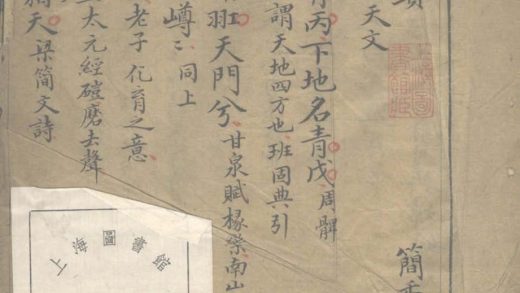 天文
丙、下地名青戊周髀
謂天地四方也、班固典引
羾天門兮、甘泉賦椽欒南山
嶟〻同上
老子化育之意
太元經磑磨去聲
天梁簡文詩
簡
圖書館